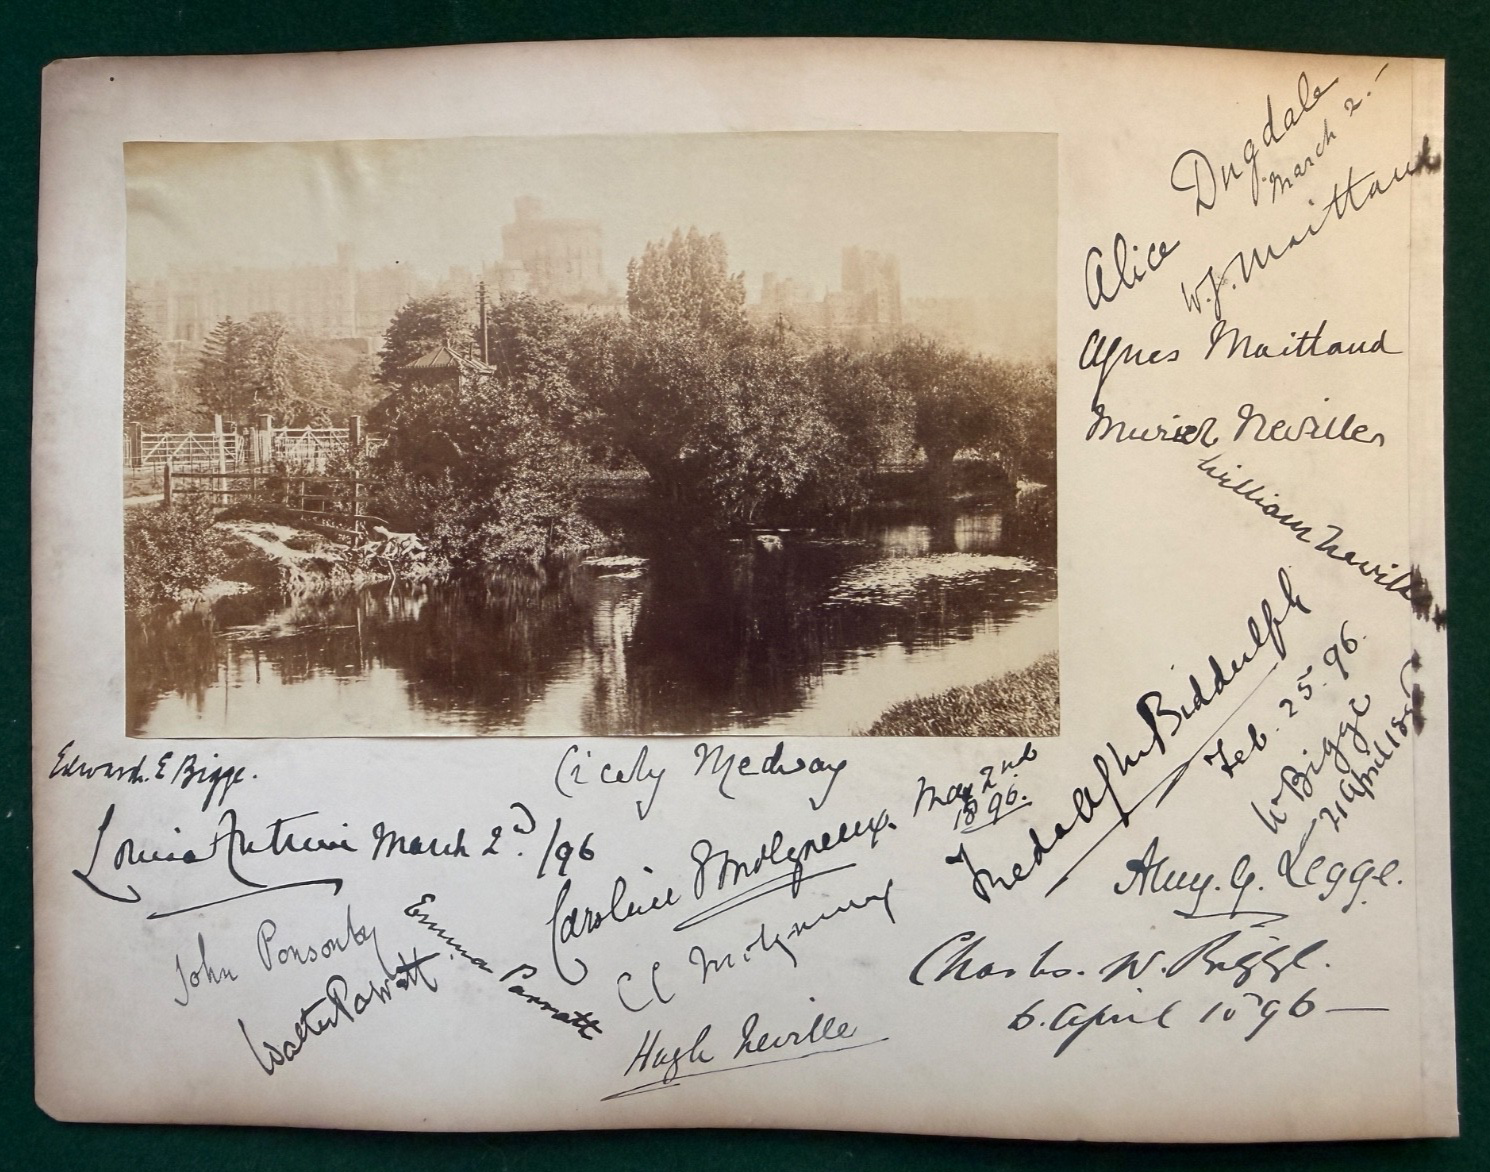 Alice Dugdale
March 2.-
W. J. Maitland
Agnes Maitland
Muriel Neville
William Neville
Freda Biddulph
Feb. 25. 96.
W Bigge
21 April 189
Edward. E Bigge.
Cicely Medway
Louisa Antrim March 2d. /96
Caroline Molyneux. May 2nd
1896.
Amy. G. Legge.
John Ponsonby
Emma Parratt
Walter Parratt
C C Molyneux
Charles. W. Bigge.
6. April 1896 —
Hugh Neville